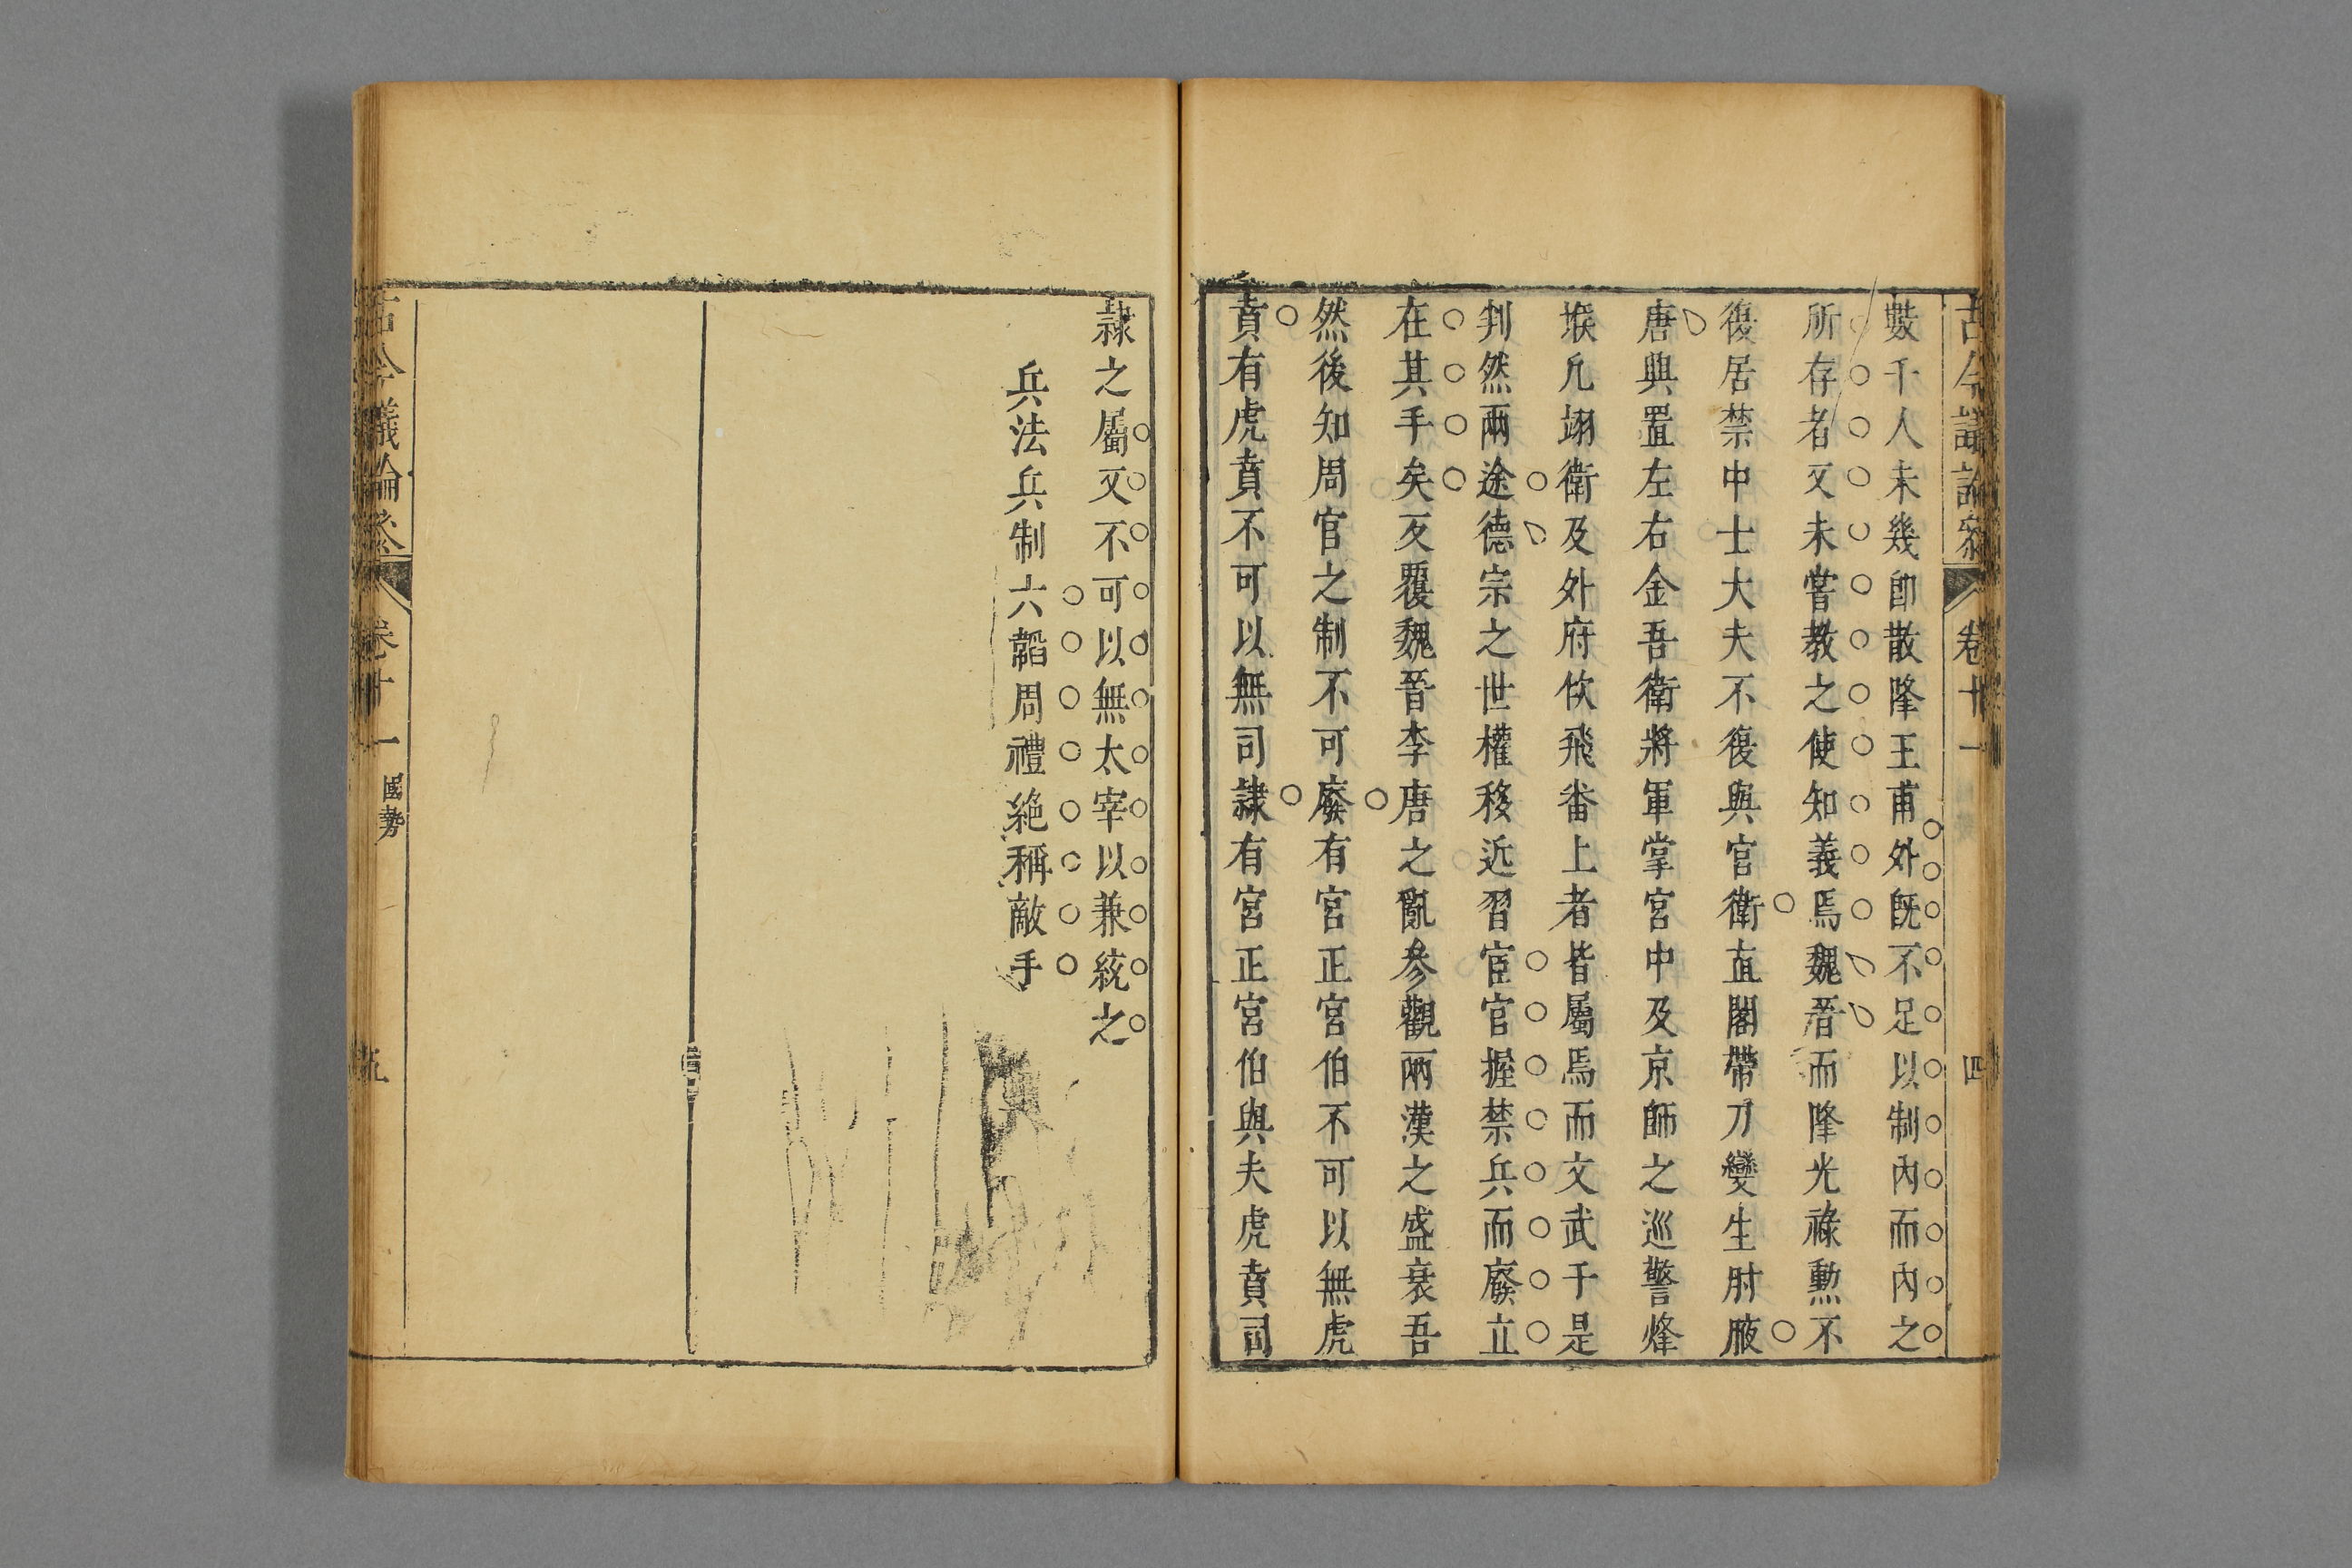 古今議論參 卷十一 四
數千人未幾卽散隆王甫外旣不足以制內而內之
所存者又未嘗教之使知義焉魏晉而隆光祿勲不
復居禁中士大夫不復與官衛直閣帶刀變生肘腋
唐興置左右金吾衛將軍掌宮中及京師之巡警烽
堠凡翊衛及外府佽飛畨上者皆屬焉而文武于是
判然兩途德宗之世權移近習宦官握禁兵而廢立
在其手矣反覆魏晉李唐之亂參觀兩漢之盛衰吾
然後知周官之制不可廢有宮正宮伯不可以無虎
賁有虎賁不可以無司隷有宮正宮伯與夫虎賁司
隷之屬又不可以無太宰以兼統之
兵法兵制六韜周禮絶稱敵手
古今議論參 卷十一 國勢 五